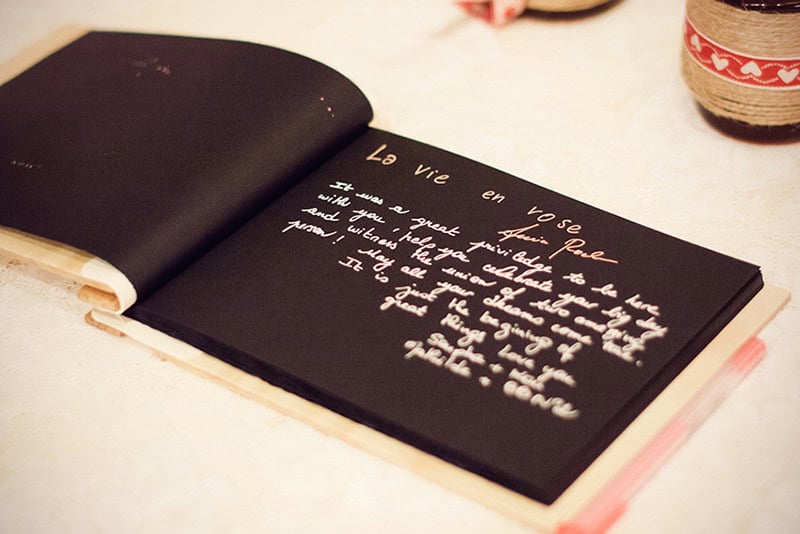 La vie en rose
It was a great priviledge to be here
with you, help you celebrate your big day
and witness the union of two amazing
person! May all your dreams come true.
It is just the begining of
great things love you